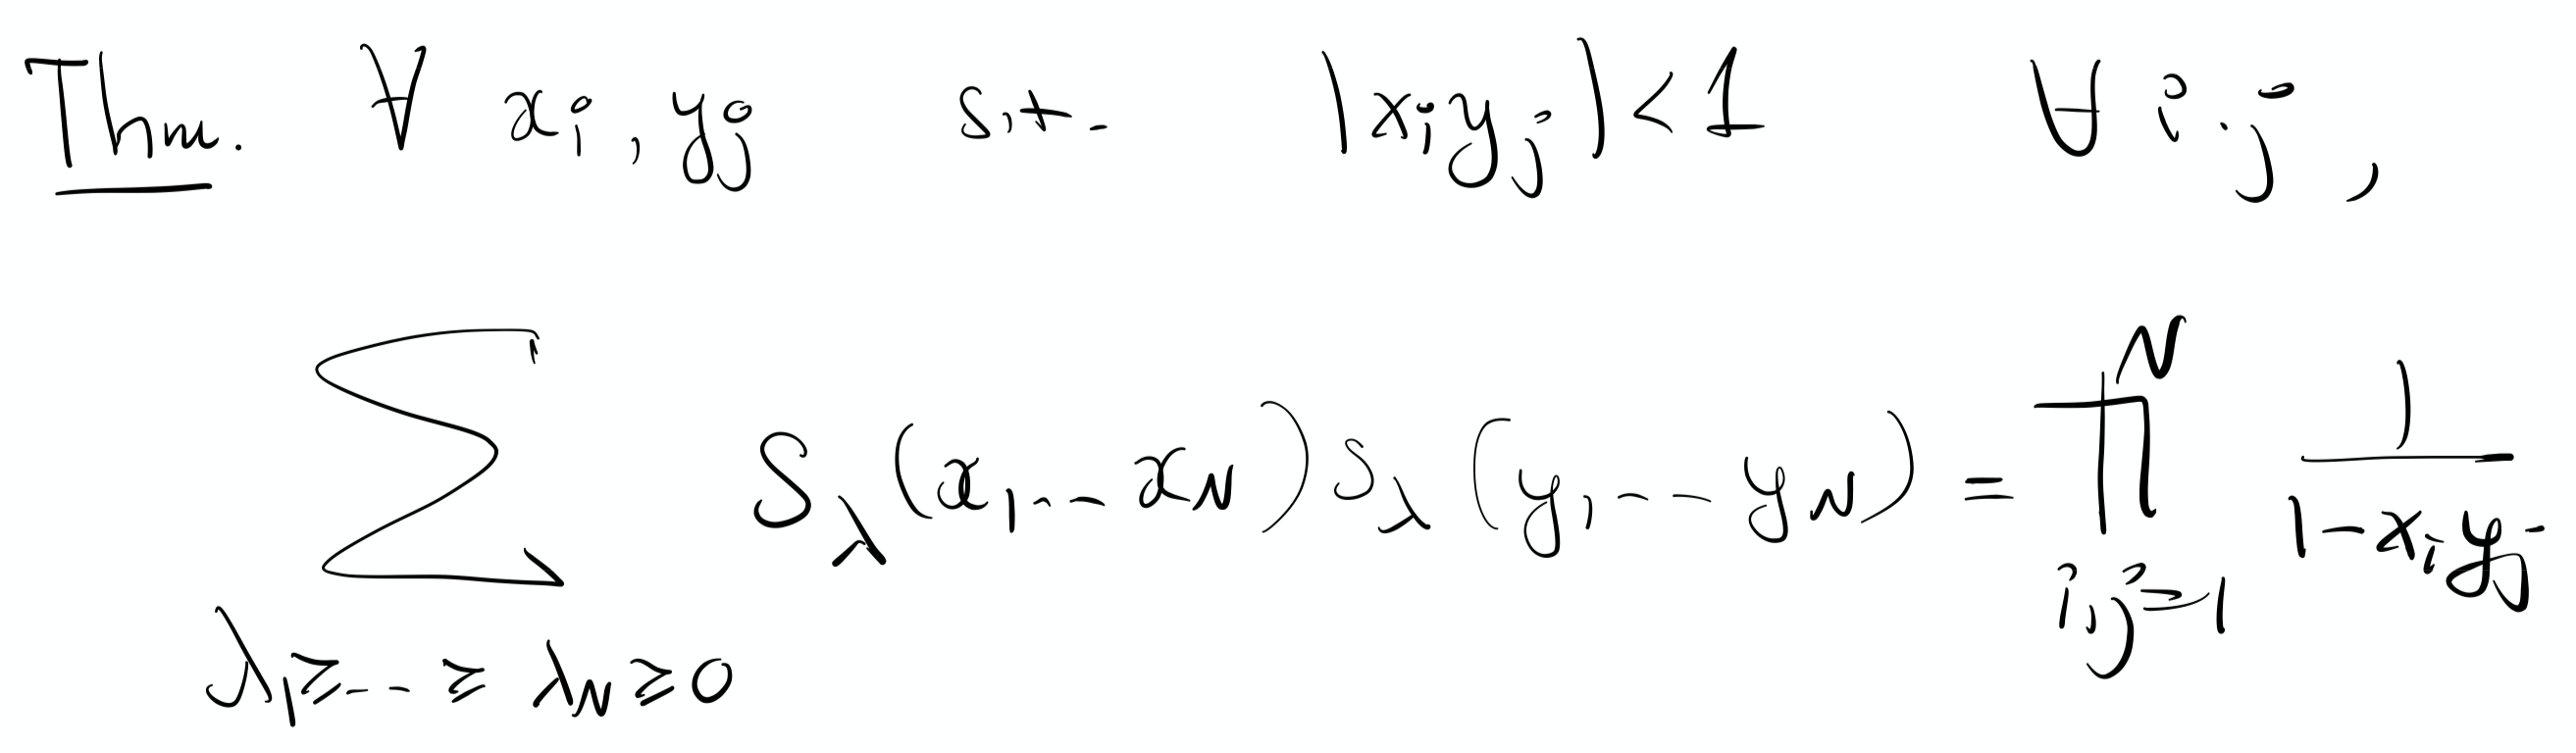 Thm. ∀ x_i, y_j s.t. |x_i y_j| < 1 ∀ i, j,
∑_{λ_1 ≥ -- ≥ λ_N ≥ 0} S_λ(x_1 -- x_N) S_λ(y_1 -- y_N) = ∏_{i,j=1}^{N} \frac{1}{1 - x_i y_j}